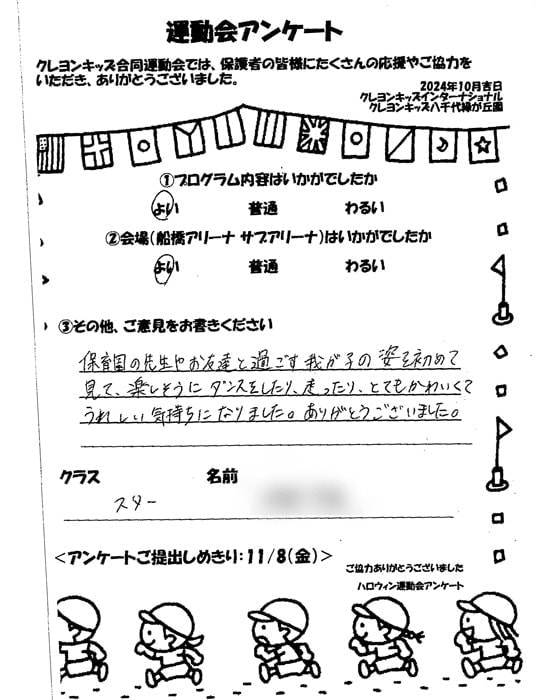 運動会アンケート
クレヨンキッズ合同運動会では、保護者の皆様にたくさんの応援やご協力を
いただき、ありがとうございました。
2024年10月吉日
クレヨンキッズインターナショナル
クレヨンキッズ八千代緑が丘園
①プログラム内容はいかがでしたか
よい 普通 わるい
②会場(船橋アリーナ サブアリーナ)はいかがでしたか
よい 普通 わるい
③その他、ご意見をお書きください
保育園の先生やお友達と過ごす我が子の姿を初めて
見て、楽しそうにダンスをしたり、走ったり、とてもかわいくて
うれしい気持ちになりました。ありがとうございました。
クラス 名前
スター
<アンケートご提出しめきり:11/8(金)>
ご協力ありがとうございました
ハロウィン運動会アンケート